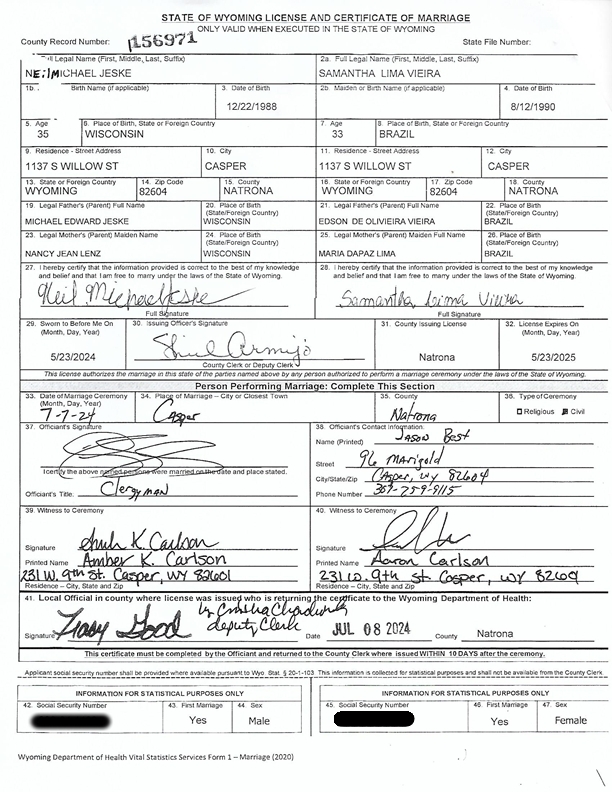 STATE OF WYOMING LICENSE AND CERTIFICATE OF MARRIAGE
ONLY VALID WHEN EXECUTED IN THE STATE OF WYOMING
County Record Number: 156971 State File Number:
ull Legal Name (First, Middle, Last, Suffix) 2a. Full Legal Name (First, Middle, Last, Suffix)
MICHAEL JESKE SAMANTHA LIMA VIEIRA
1b. Birth Name (if applicable) 3. Date of Birth 2b Maiden or Birth Name (if applicable) 4. Date of Birth
12/22/1988 8/12/1990
5. Age 6. Place of Birth, State or Foreign Country 7. Age 8. Place of Birth, State or Foreign Country
35 WISCONSIN 33 BRAZIL
9. Residence - Street Address 10. City 11. Residence - Street Address 12. City
1137 S WILLOW ST CASPER 1137 S WILLOW ST CASPER
13. State or Foreign Country 14. Zip Code 15. County 16. State or Foreign Country 17. Zip Code 18. County
WYOMING 82604 NATRONA WYOMING 82604 NATRONA
19. Legal Father's (Parent) Full Name 20. Place of Birth (State/Foreign Country) 21. Legal Father's (Parent) Full Name 22. Place of Birth (State/Foreign Country)
MICHAEL EDWARD JESKE WISCONSIN EDSON DE OLIVIEIRA VIEIRA BRAZIL
23. Legal Mother's (Parent) Maiden Name 24. Place of Birth (State/Foreign Country) 25. Legal Mother's (Parent) Maiden Full Name 26. Place of Birth (State/Foreign Country)
NANCY JEAN LENZ WISCONSIN MARIA DAPAZ LIMA BRAZIL
27. I hereby certify that the information provided is correct to the best of my knowledge 28. I hereby certify that the information provided is correct to the best of my knowledge
and belief and that I am free to marry under the laws of the State of Wyoming. and belief and that I am free to marry under the laws of the State of Wyoming.
Neil Michael Jeske Samantha Lima Vieira
Full Signature Full Signature
29. Sworn to Before Me On 30. Issuing Officer's Signature 31. County Issuing License 32. License Expires On
(Month, Day, Year) (Month, Day, Year)
5/23/2024 Armijo Natrona 5/23/2025
County Clerk or Deputy Clerk
This license authorizes the marriage in this state of the parties named above by any person authorized to perform a marriage ceremony under the laws of the State of Wyoming.
Person Performing Marriage: Complete This Section
33. Date of Marriage Ceremony 34. Place of Marriage – City or Closest Town 35. County 36. Type of Ceremony
(Month, Day, Year)
7-7-24 Casper Natrona Religious Civil
37. Officiant's Signature 38. Officiant's Contact Information.
Name (Printed) Jason Best
Street 96 Marigold
I certify the above named persons were married on the date and place stated. City/State/Zip Casper, WY 82604
Officiant's Title. Clergyman Phone Number 307-259-9115
39. Witness to Ceremony 40. Witness to Ceremony
Signature K. Carlson Signature
Printed Name Amber K. Carlson Printed Name Aaron Carlson
231 W. 9th St. Casper, WY 82601 231 W. 9th St Casper, WY 82601
Residence – City, State and Zip Residence – City, State and Zip
41. Local Official in county where license was issued who is returning the certificate to the Wyoming Department of Health:
Signature Tracy Good by deputy Clerk Date JUL 08 2024 County Natrona
This certificate must be completed by the Officiant and returned to the County Clerk where issued WITHIN 10 DAYS after the ceremony.
Applicant social security number shall be provided where available pursuant to Wyo Stat. § 20-1-103 This information is collected for statistical purposes and shall not be available from the County Clerk.
INFORMATION FOR STATISTICAL PURPOSES ONLY INFORMATION FOR STATISTICAL PURPOSES ONLY
42. Social Security Number 43. First Marriage 44. Sex 45. Social Security Number 46. First Marriage 47. Sex
Yes Male Yes Female
Wyoming Department of Health Vital Statistics Services Form 1 – Marriage (2020)